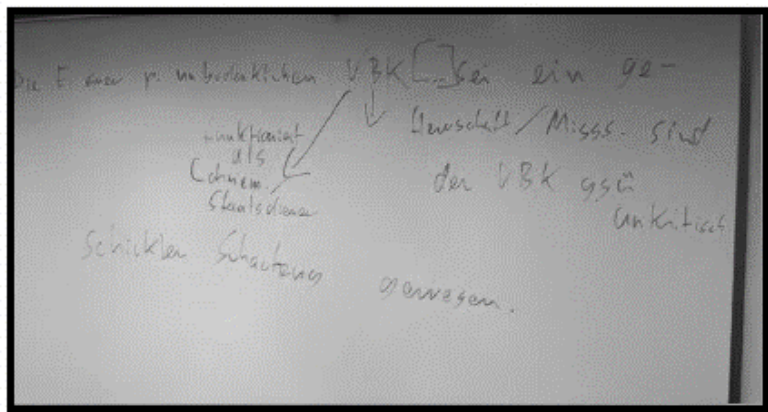 Die E einer p. unbedenklichen VBK [...] sei ein ge-
funktioniert
als
Staatsdiener
Herrschaft / Misss. sind
der VBK ggü
unkritisch
schickter Schachzug gewesen.